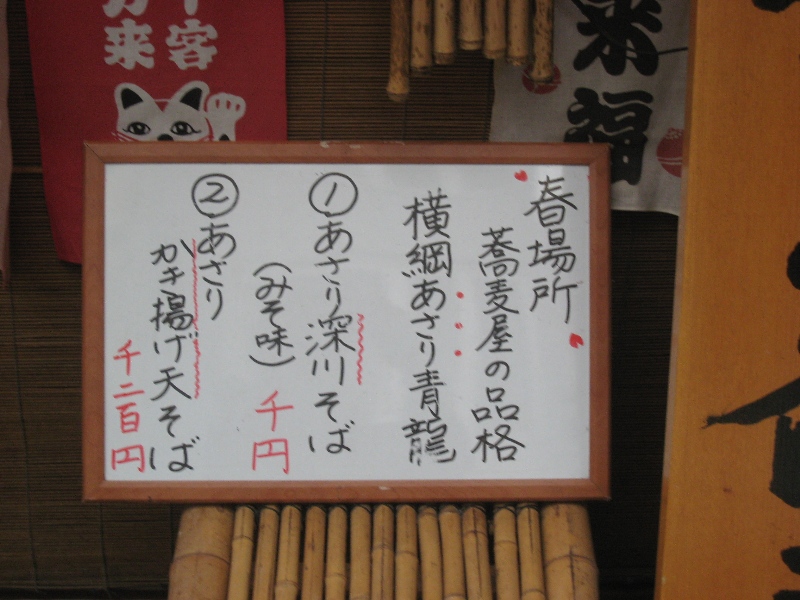 春場所
蕎麦屋の品格
横綱あさり青龍
①あさり深川そば
(みそ味)
千円
②あさり
かき揚げ天そば
千二百円
来福
千客
万来